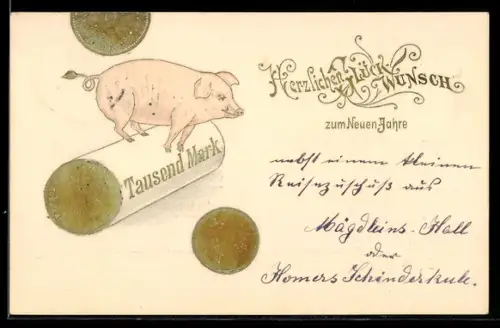 Herzlichen Glück
Wunsch
zum Neuen Jahre
Tausend Mark
nebst einem kleinen
Reisezuschuß aus
Mägdleins-Hall
oder
Homers Schinderkule.